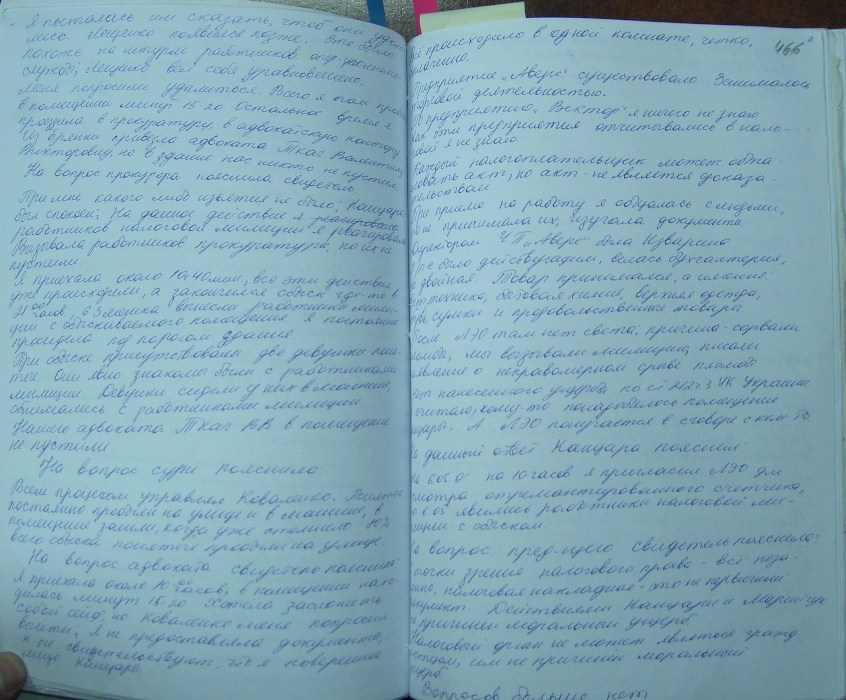 Я пыталась им сказать, чтоб они
Лещенко появился позже. Это было
похоже на штурм работников
Лещенко вёл себя уравновешенно.
Меня попросили удалиться. Всего я там
в помещении минут 15-20. Остальное время я
провела в прокуратуру, в адвокатскую контору.
привезла адвоката Ткач Валентину
Викторовну, но в здание нас никто не пустил.
На вопрос прокурора пояснила свидетель
При мне какого либо изъятия не было; Канцара
был спокоен; На данное действие я реагировала
работников налоговой милиции я реагировала
Вызывала работников прокуратуры, но их не
пустили.
Я приехала около 10.40 мин, все эти действия
уже происходили, а закончился обыск где-то в
21 00 часов, 3 мешка вынесли работники мили-
ции с обыскиваемого помещения. Я постоянно
проходила под порогом здания.
При обыске присутствовали две девушки поня-
тые. Они явно знакомы были с работниками
милиции. Девушки сидели у них в машине,
обнимались с работниками милиции
Нашего адвоката Ткач В.В. в помещение
не пустили.
На вопрос судьи пояснила
Всем процессом управлял Коваленко. Понятые
постоянно пробыли на улице и в машине, в
помещение зашли, когда уже стемнело. 90%
всего обыска понятые пробыли на улице.
На вопрос адвоката свидетель пояснил:
Я приехала около 10 00 часов, в помещении нахо-
дилась минут 15-20. Хотела заслонить
собой сейф, но Коваленко меня попросил
выйти; Я не предоставляла документы,
к-рые свидетельствуют, что я доверенное
лицо Канцары
466
Всё происходило в одной комнате, четко,
Предприятие "Аверс" существовало. Занималось
торговой деятельностью.
О предприятию "Вектор" я ничего не знаю
Как эти предприятия отчитывались в нало-
говой я не знаю
Каждый налогоплательщик может обжа-
ловать акт, но акт - не является доказа-
тельством
При приеме на работу я общалась с людьми,
но не принимала их, изучала документа
Директором ЧП "Аверс" была Изварина
было действующим, велась бухгалтерия,
не двойная. Товар принимался, а именно:
оргтехника, бытовая химия, верхняя одежда,
сумки и продовольственные товары
После ЛЭО там нет света; причина - сорвали
пломбы, мы вызывали милицию, писали
заявление о неправомерном срыве пломб
Факт нанесенного ущерба по ст 212 ч 3 УК Украины
считаю, кому-то понадобилось помещение
Канцары. А ЛЭО получается в сговоре с кем-то.
На данный ответ Канцара пояснил:
на 10 часов я пригласил ЛЭО для
осмотра отремонтированного счетчика,
явились работники налоговой ми-
лиции с обыском
На вопрос пред-щего свидетель пояснила:
С точки зрения налогового право - всё неза-
конно, налоговая накладная - это не первичный
документ. Действиями Канцары и
не причинен моральный ущерб.
Налоговый орган не может являться гражд
истцом, им не причинен моральный
ущерб.
Вопросов больше нет